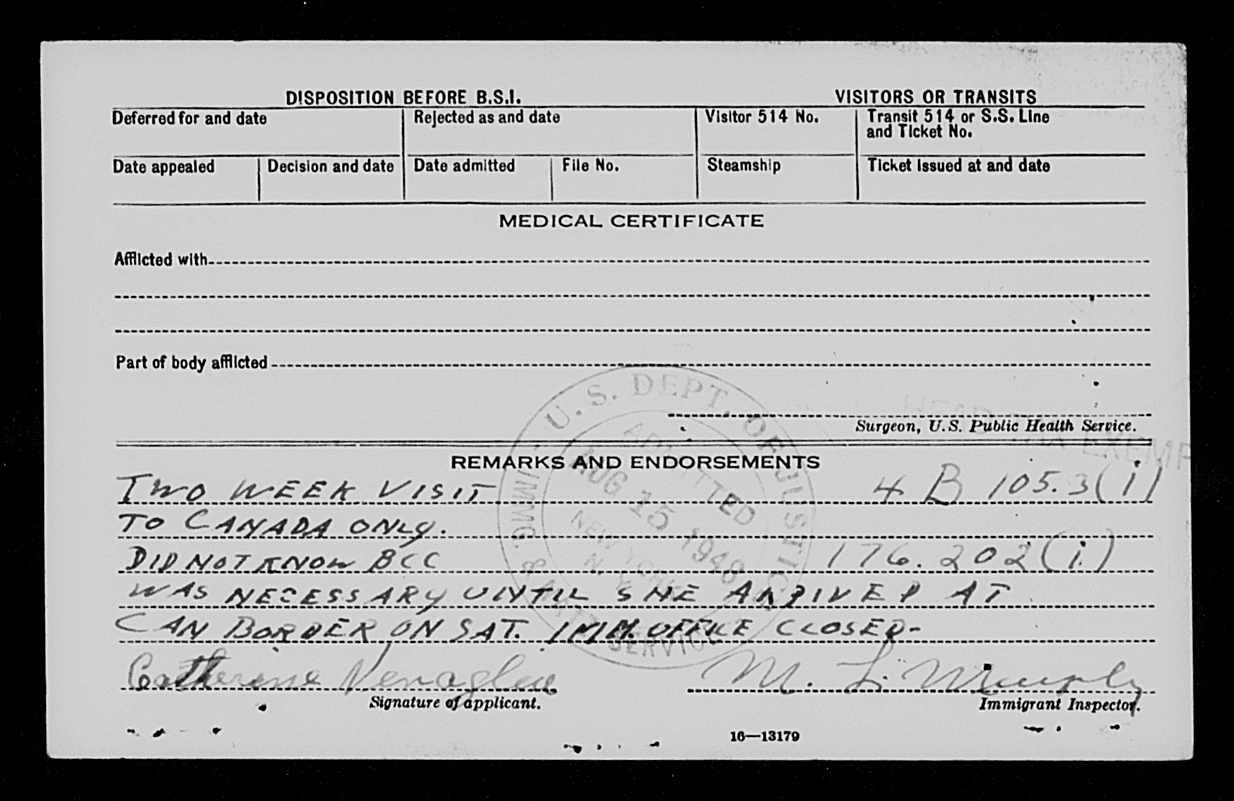 DISPOSITION BEFORE B.S.I. VISITORS OR TRANSITS
Deferred for and date Rejected as and date Visitor 514 No. Transit 514 or S.S. Line and Ticket No.
Date appealed Decision and date Date admitted File No. Steamship Ticket issued at and date
MEDICAL CERTIFICATE
Afflicted with
Part of body afflicted
Surgeon, U.S. Public Health Service.
HEAD TAX EXEMP
U.S. DEPT. OF JUSTICE
IMMG. & SERVICE
ADMITTED
AUG 15 1948
NEW YORK
N.Y.
REMARKS AND ENDORSEMENTS
TWO WEEK VISIT 4 B 105.3(i)
TO CANADA ONLY.
DID NOT KNOW BCC 176.202(i)
WAS NECESSARY UNTIL SHE ARRIVED AT
CAN BORDER ON SAT. IMM. OFFICE CLOSED-
Catherine M. L. Murphy
Signature of applicant. Immigrant Inspector.
16—13179